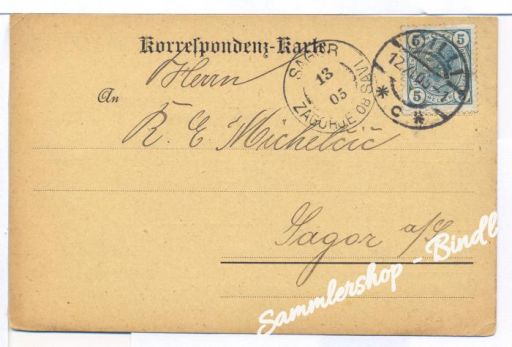 Korrespondenz-Karte
Herrn
An
R. E. Michelčič
Sagor a/S
SAGOR
13
05
ZAGORJE OB SAVI
CILLI
C
5
5
5
5
Sammlershop - Bindl